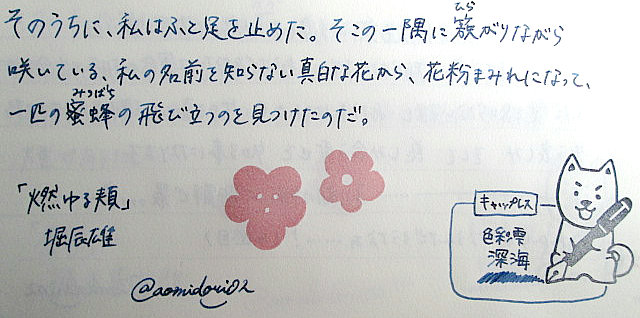 むら
そのうちに、私はふと足を止めた。そこの一隅に簇がりながら
咲いている、私の名前を知らない真白な花から、花粉まみれになって、
みつばち
一匹の蜜蜂の飛び立つのを見つけたのだ。
「燃ゆる頬」
堀辰雄
キャップレス
色彩雫
深海